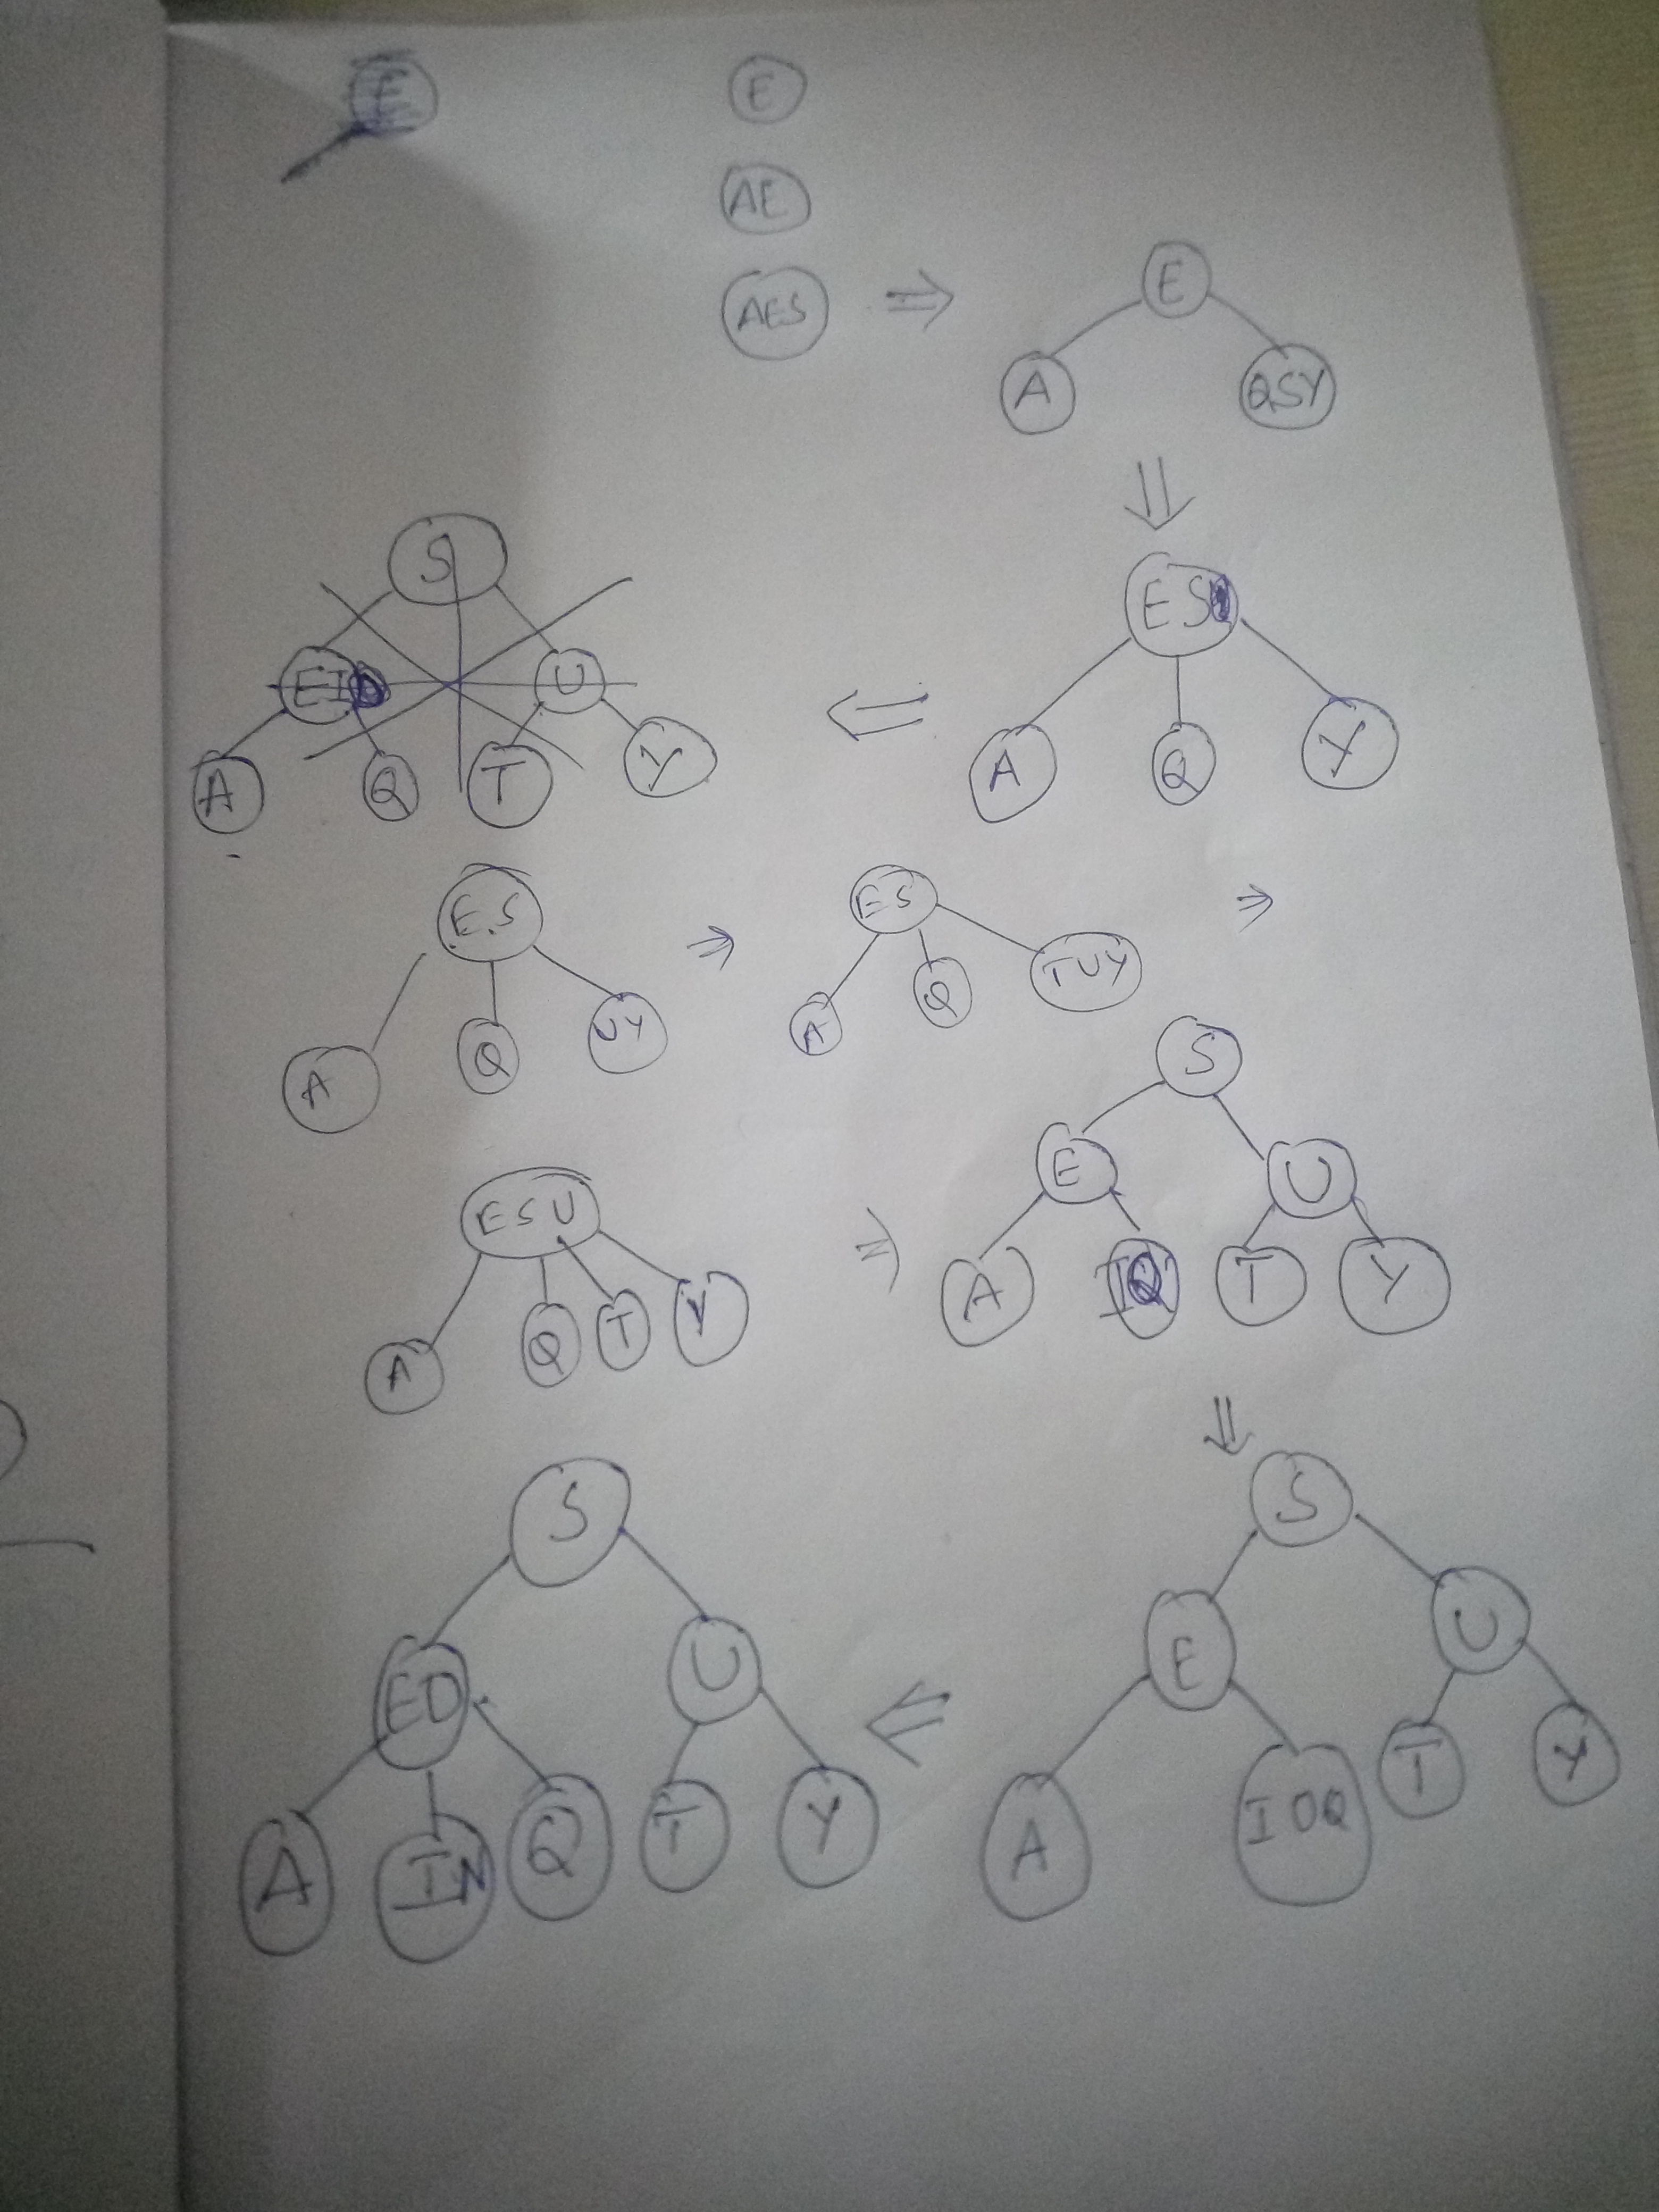 E
E
AE
AES ⇒ E
A QSY
⇓
ES
A Q Y
⇐
S
EI U
A Q T Y
E.S ⇒ ES ⇒
A Q UY
A Q TUY
ESU ⇒ S
E U
A Q T Y
A IQ T Y
⇓
S
E U
A IOQ T Y
⇐
S
EO U
A IN Q T Y